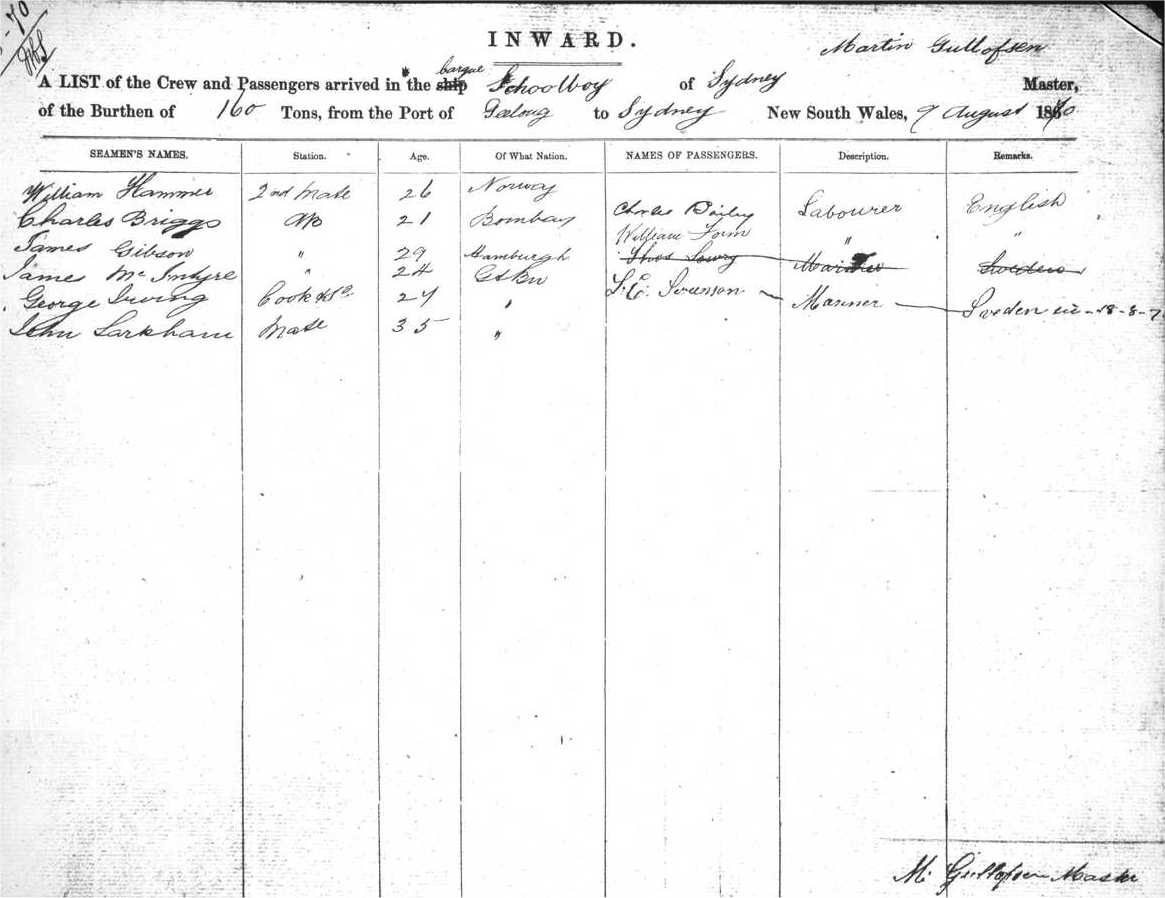 - 70
INWARD.
Martin Gullofsen
A LIST of the Crew and Passengers arrived in the ship barque Schoolboy of Sydney Master,
of the Burthen of 160 Tons, from the Port of Geelong to Sydney New South Wales, 9 August 1870
SEAMEN'S NAMES. Station. Age. Of What Nation. NAMES OF PASSENGERS. Description. Remarks.
William Hammer 2nd Mate 26 Norway
Charles Briggs AB 21 Bombay Charles Bailey Labourer English
William Form " "
James Gibson " 29 Hamburgh Thos Lowry Mariner Sweden
James McIntyre " 24 Gt Bn S. E. Swenson Mariner Sweden
George Irving Cook & Sd 27 "
John Larkham Mate 35 "
M. Gullofsen Master